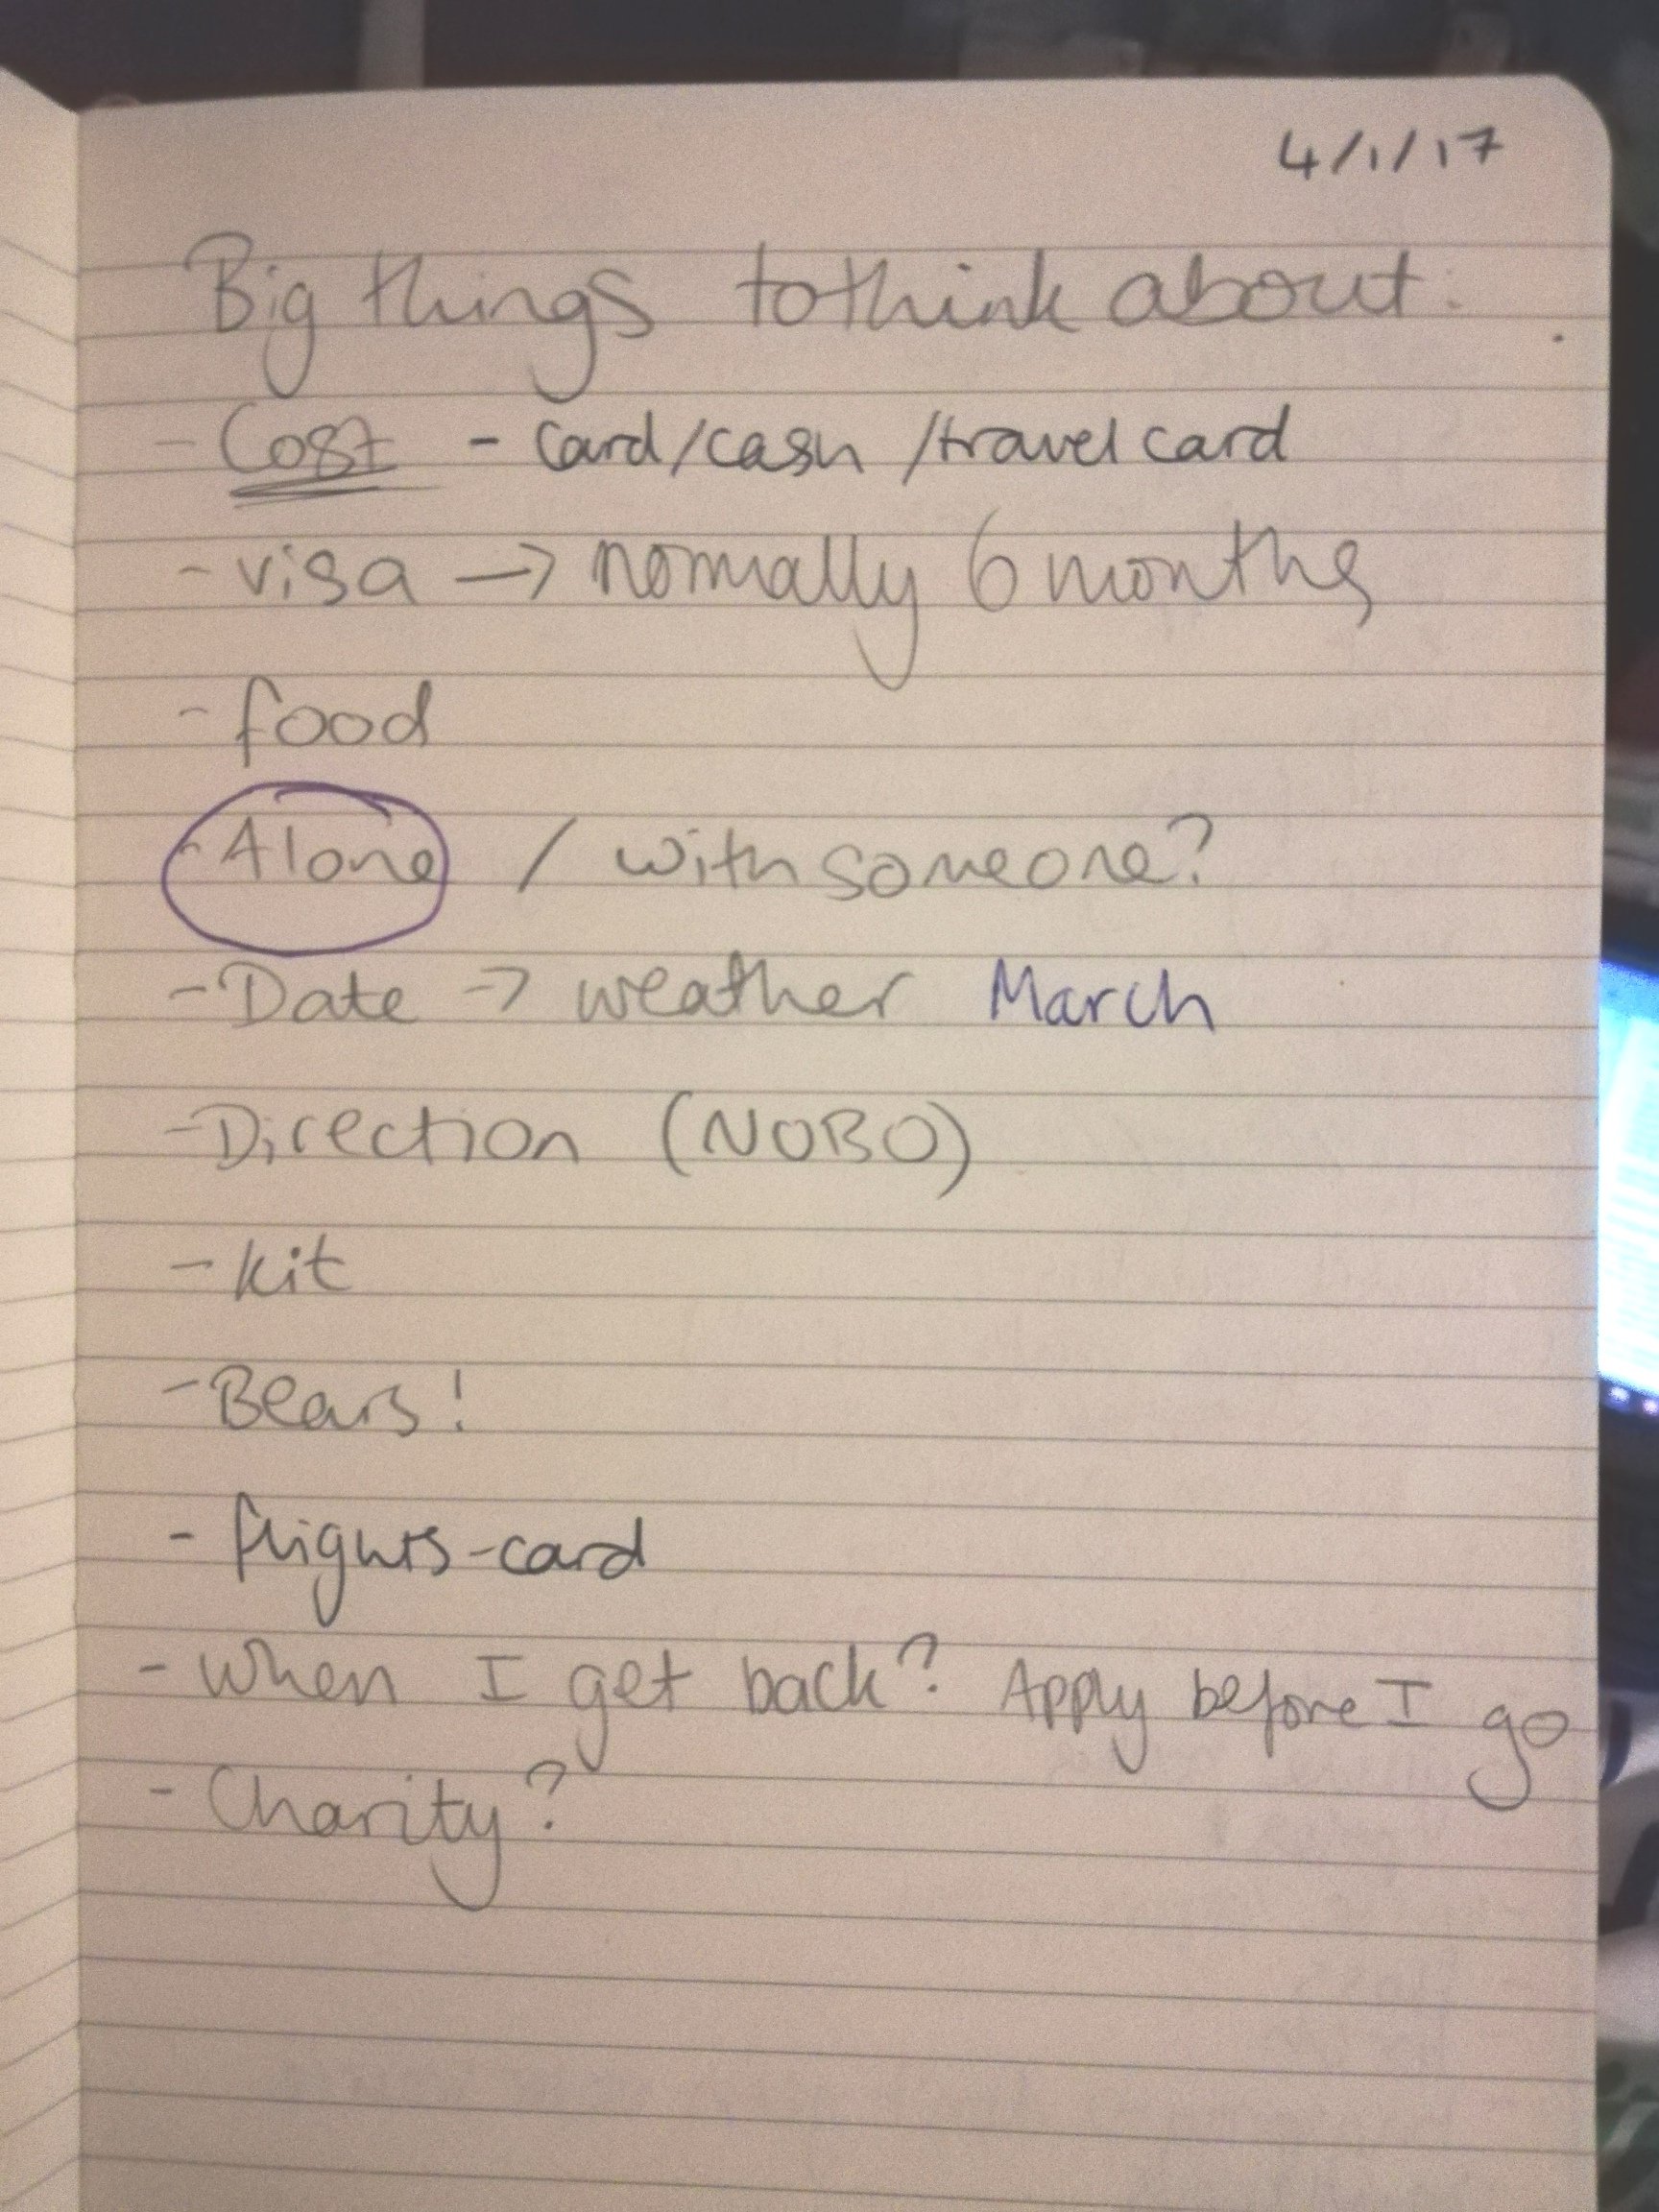 4/1/17
Big things to think about:
- Cost - Card/cash/travel card
- visa → normally 6 months
- food
- Alone / with someone?
- Date → weather March
- Direction (NOBO)
- Kit
- Bears!
- flights-card
- When I get back? Apply before I go
- Charity?